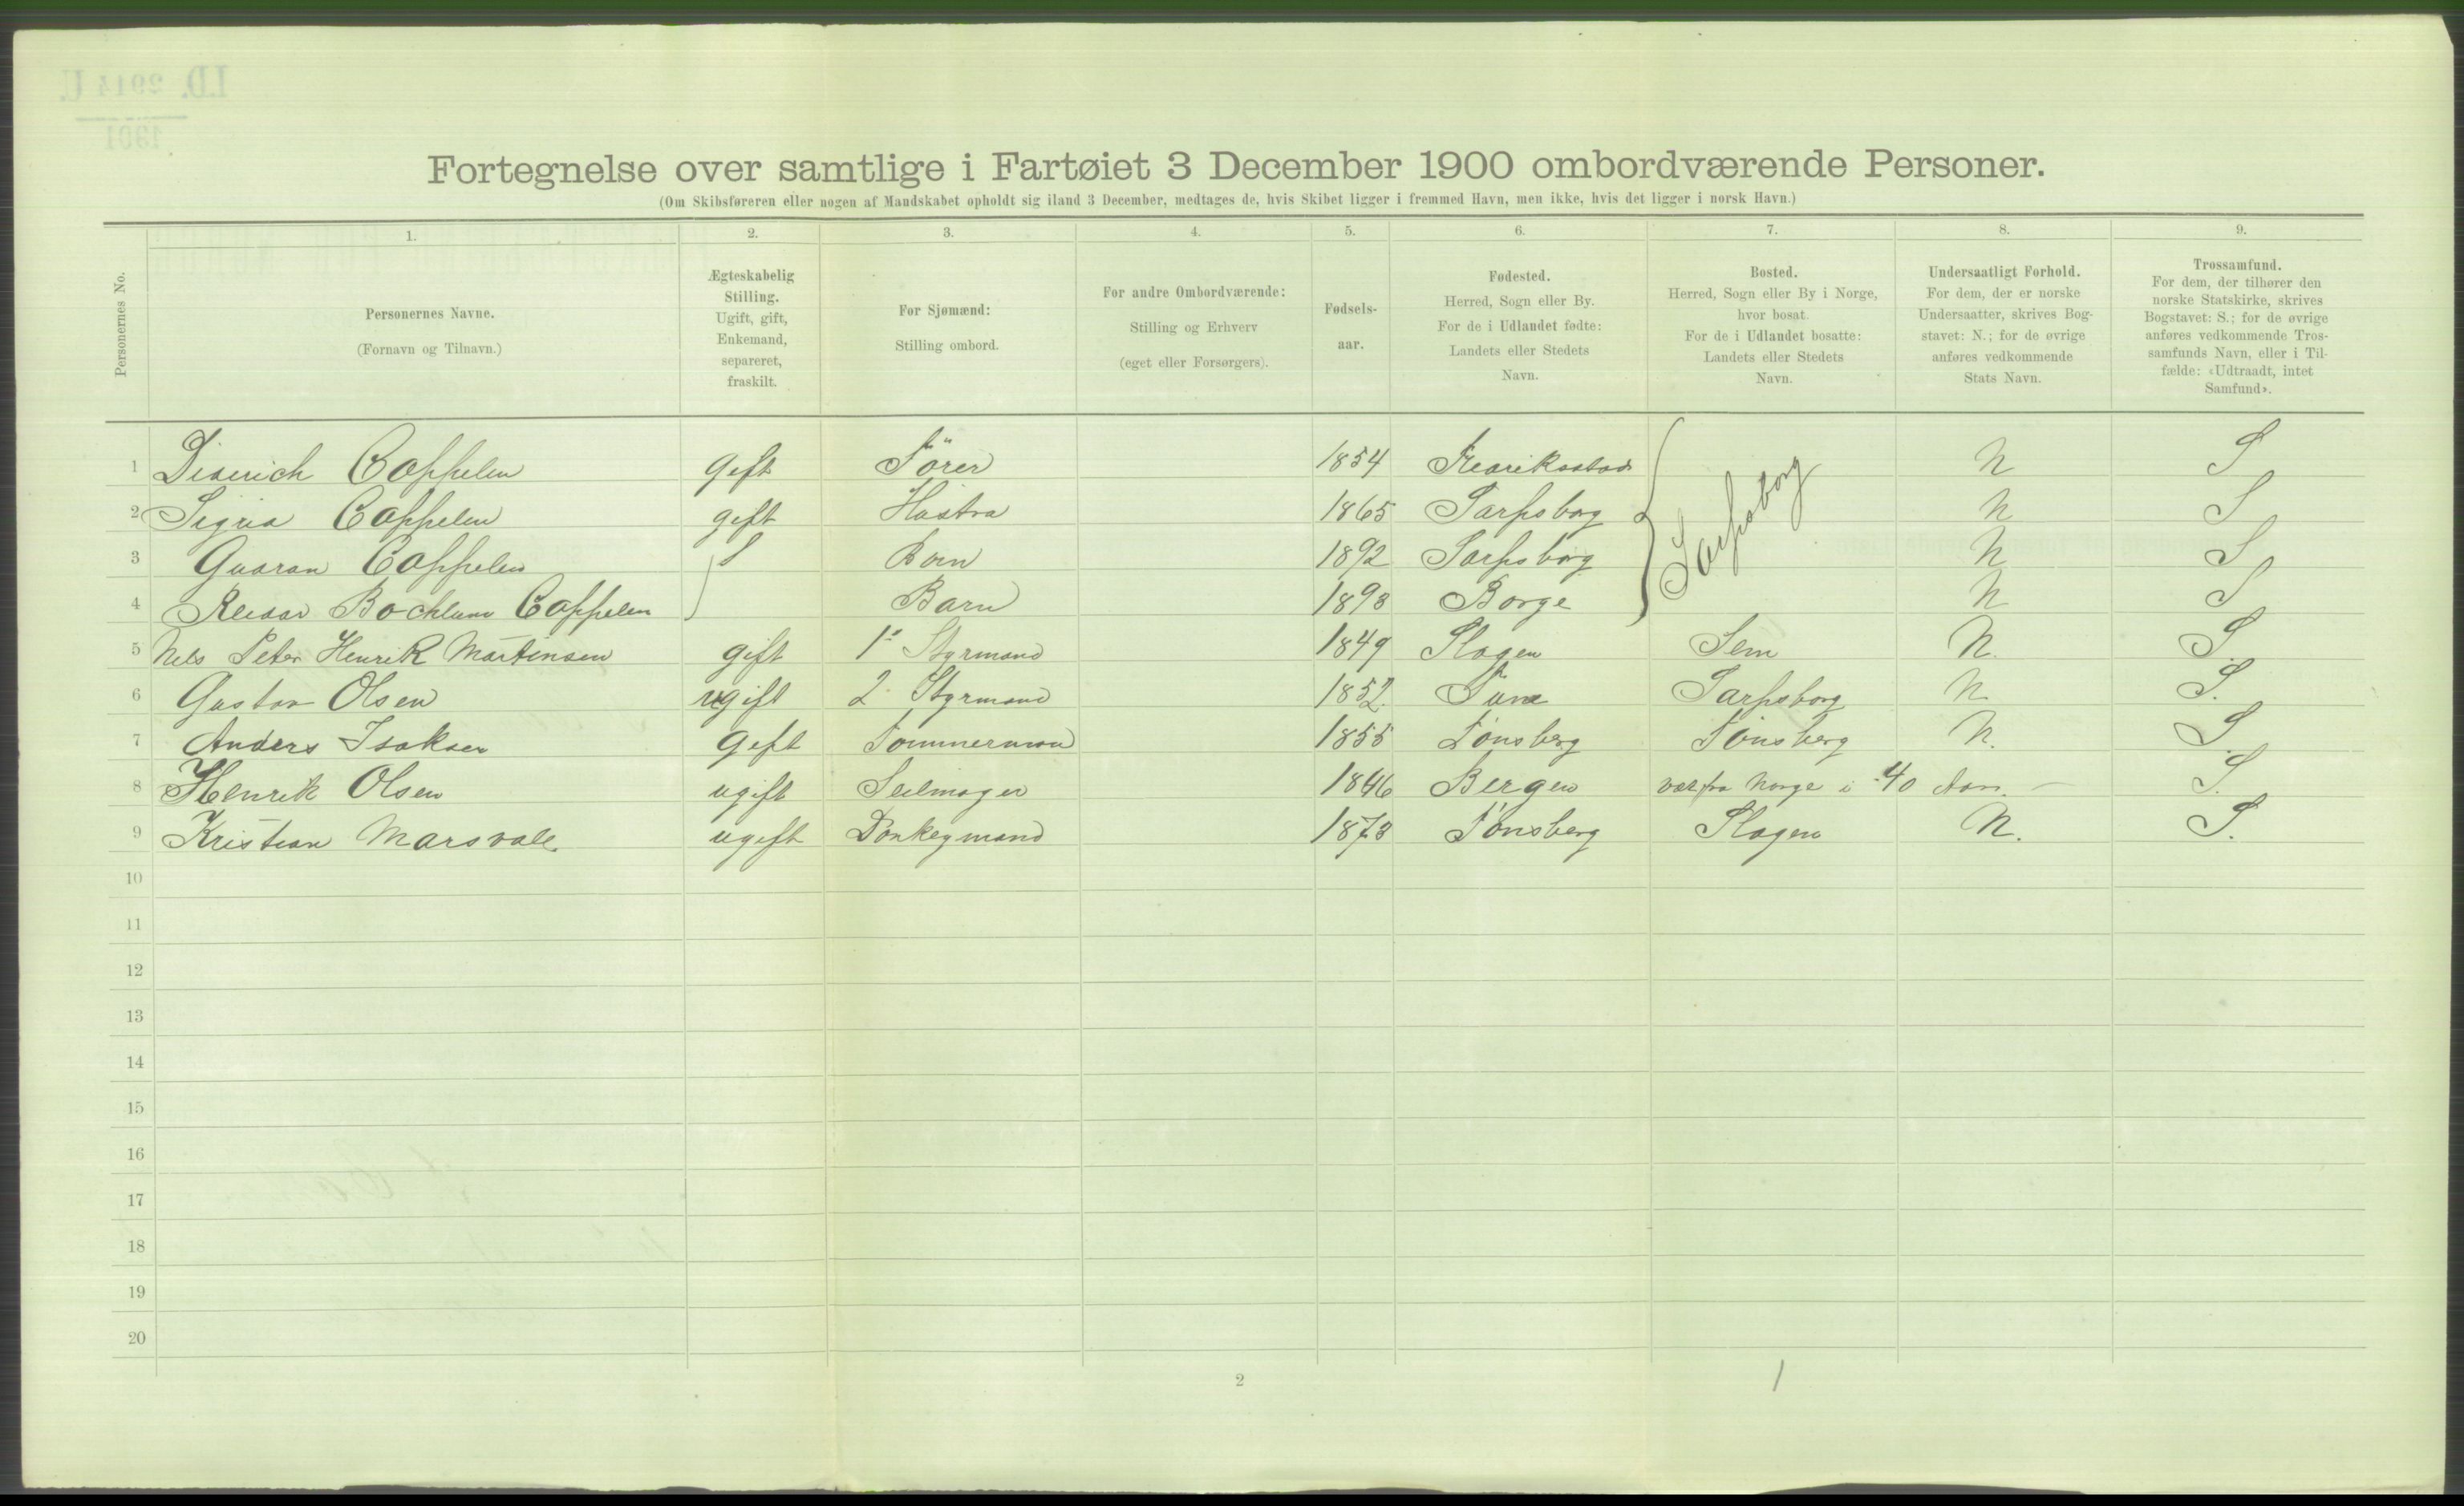 I.D. 2914 U.
1901
Fortegnelse over samtlige i Fartøiet 3 December 1900 ombordværende Personer.
(Om Skibsføreren eller nogen af Mandskabet opholdt sig iland 3 December, medtages de, hvis Skibet ligger i fremmed Havn, men ikke, hvis det ligger i norsk Havn.)
Personernes No.
1. 2. 3. 4. 5. 6. 7. 8. 9.
Personernes Navne.
(Fornavn og Tilnavn.)
Ægteskabelig
Stilling.
Ugift, gift,
Enkemand,
separeret,
fraskilt.
For Sjømænd:
Stilling ombord.
For andre Ombordværende:
Stilling og Erhverv
(eget eller Forsørgers).
Fødsels-
aar.
Fødested.
Herred, Sogn eller By.
For de i Udlandet fødte:
Landets eller Stedets
Navn.
Bosted.
Herred, Sogn eller By i Norge,
hvor bosat.
For de i Udlandet bosatte:
Landets eller Stedets
Navn.
Undersaatligt Forhold.
For dem, der er norske
Undersaatter, skrives Bog-
stavet: N.; for de øvrige
anføres vedkommende
Stats Navn.
Trossamfund.
For dem, der tilhører den
norske Statskirke, skrives
Bogstavet: S.; for de øvrige
anføres vedkommende Tros-
samfunds Navn, eller i Til-
fælde: «Udtraadt, intet
Samfund».
1 Diderich Cappelen gift Förer 1854 Fredriksstad N S
2 Sigrid Cappelen gift Hustra 1865 Sarpsborg Sarpsborg N S
3 Gudrun Cappelen Barn 1892 Sarpsborg N S
4 Cappelen Barn 1898 Borge N S
5 Nels Peter Henrik Martinsen gift 1' Styrmand 1849 Slagen Sem N. S.
6 Gustav Olsen ugift 2 Styrmand 1852. Tune Sarpsborg N. S.
7 Anders Isaksen gift Tømmermand 1855 Tönsberg Tönsberg N. S.
8 Henrik Olsen ugift Seilmager 1846 Bergen fra Norge i 40 Aar. — S.
9 Kristian Marsvall. ugift Donkeymand 1878 Tönsberg Slagen N. S.
10
11
12
13
14
15
16
17
18
19
20
2
1